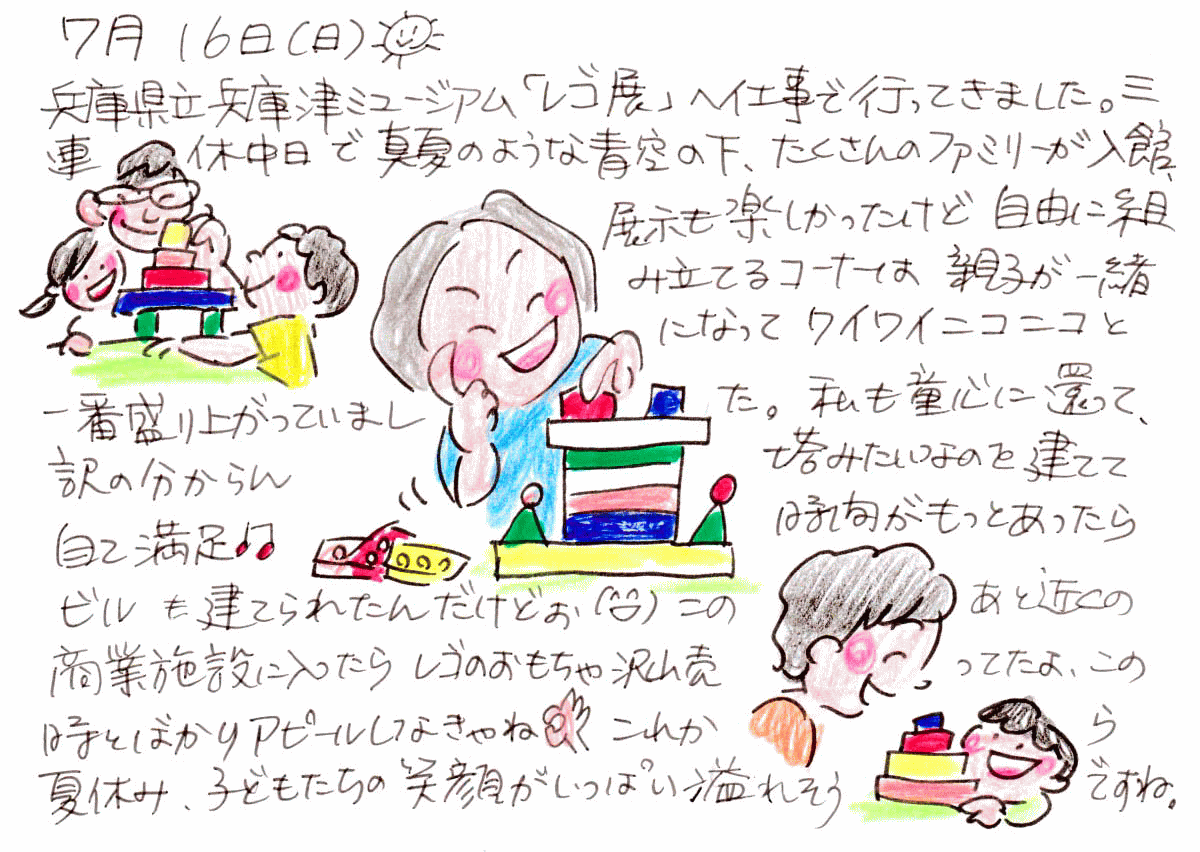 7月16日(日)
兵庫県立兵庫津ミュージアム「レゴ展」へ仕事で行ってきました。三
連 休中日で真夏のような青空の下、たくさんのファミリーが入館、
展示も楽しかったけど 自由に組
み立てるコーナーは 親子が一緒
になって ワイワイニコニコと
一番盛り上がっていまし た。私も童心に還って、
訳の分からん 塔みたいなのを建てて
自己満足♫ 時間がもっとあったら
ビルも建てられたんだけどぉ(笑) この あと近くの
商業施設に入ったら レゴのおもちゃ沢山売 ってたよ、この
時とばかりアピールしてなきゃね これか ら
夏休み、子どもたちの笑顔がいっぱい溢れそう ですね。